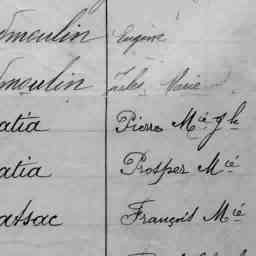 moulin Eugène
moulin Jules Marie
atia Pierre Mié Jh
atia Prosper Mié
assac François Mié